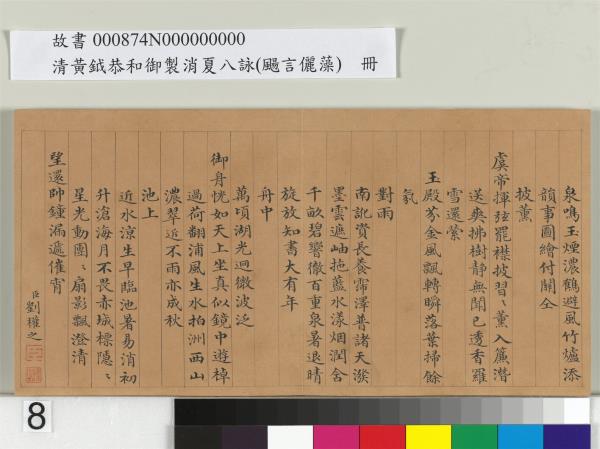 故書 000874N000000000
清黃鉞恭和御製消夏八詠(颺言儷藻) 冊
泉鳴玉煙濃鶴避風竹爐添
韻事圖繪付關仝
披薰
虞帝揮弦罷襟披習〻薰入簾潛
送爽拂樹靜無聞已透香羅
雪還縈
玉殿芬金風飄轉瞬落葉掃餘
氛
對雨
南訛資長養霈澤普諸天潑
墨雲遮岫拖藍水漾烟潤含
千畝碧響徹百重泉暑退晴
旋放知書大有年
舟中
萬頃湖光迥微波泛
御舟恍如天上坐真似鏡中遊棹
過荷翻浦風生水拍洲西山
濃翠近不雨亦成秋
池上
近水涼生早臨池暑易消初
升滄海月不畏赤城標隱〻
星光動團〻扇影飄澄清
望還帥鐘漏遞催宵
臣劉權之
8